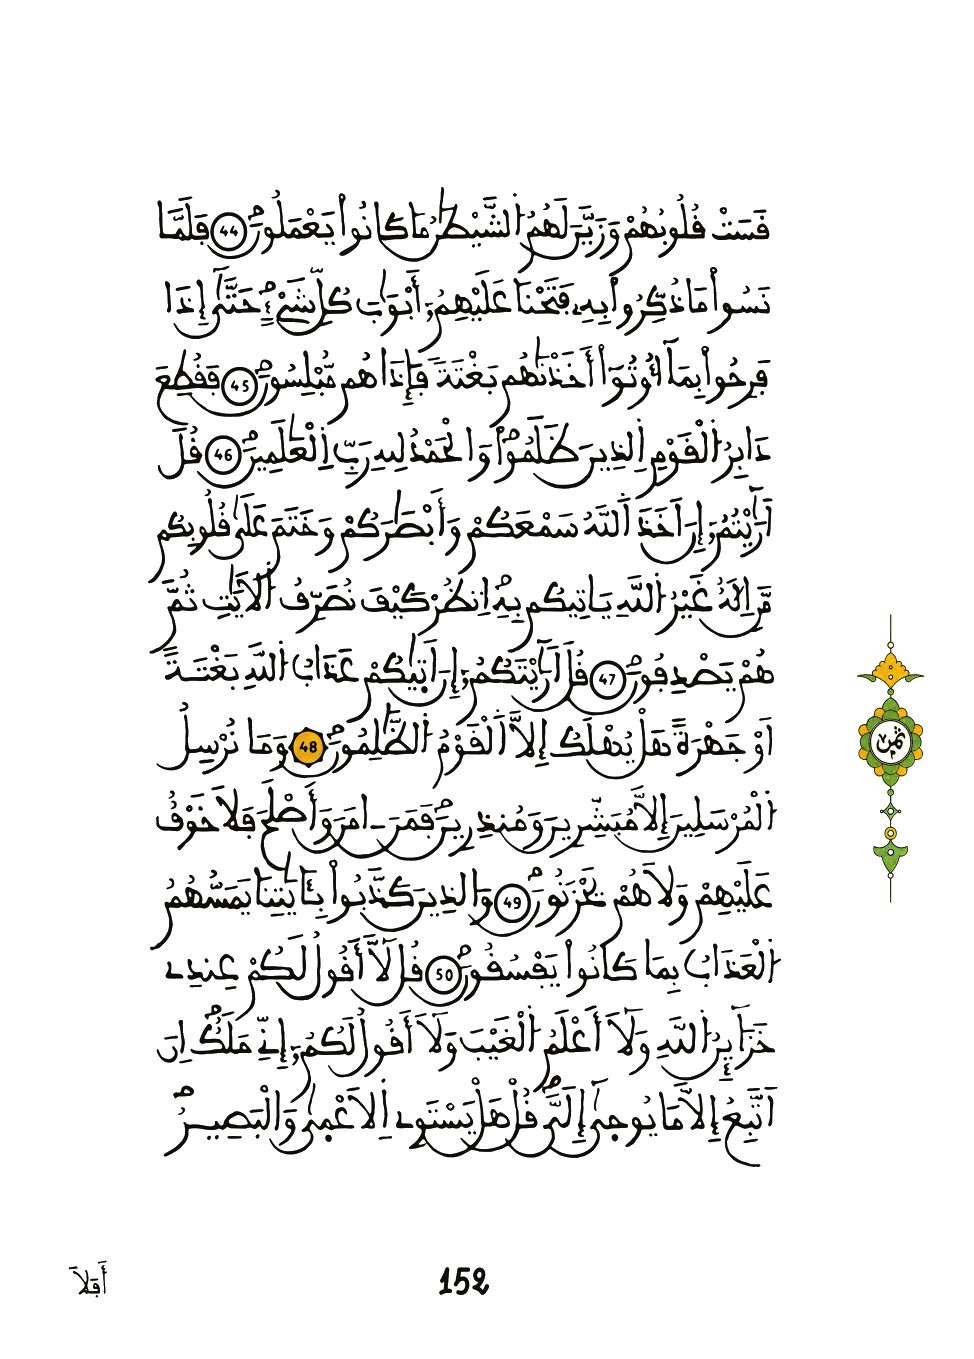 قَسَتْ قُلُوبُهُمْ وَزَيَّنَ لَهُمُ الشَّيْطَٰنُ مَا كَانُواْ يَعْمَلُونَ 44 فَلَمَّا
نَسُواْ مَا ذُكِّرُواْ بِهِۦ فَتَحْنَا عَلَيْهِمُۥٓ أَبْوَٰبَ كُلِّ شَےْءٍ حَتَّىٰٓ إِذَا
فَرِحُواْ بِمَآ أُوتُوٓاْ أَخَذْنَٰهُم بَغْتَةً فَإِذَا هُم مُّبْلِسُونَ 45 فَقُطِعَ
دَابِرُ الْقَوْمِ الذِينَ ظَلَمُواْ وَالْحَمْدُ لِلهِ رَبِّ الْعَٰلَمِينَ 46 قُلَ
اَرَٰٓيْتُمُۥٓ إِنَ اَخَذَ اَللَّهُ سَمْعَكُمْ وَأَبْصَٰرَكُمْ وَخَتَمَ عَلَىٰ قُلُوبِكُم
مَّنِ اِلَٰهٌ غَيْرُ اللَّهِ يَاتِيكُم بِهِ اِنظُرْ كَيْفَ نُصَرِّفُ اُلَايَٰتِ ثُمَّ
هُمْ يَصْدِفُونَ 47 قُلَ اَرَٰٓيْتَكُمُۥٓ إِنَ اَتٜيٰكُمْ عَذَابُ اللَّهِ بَغْتَةً
اَوْ جَهْرَةً هَلْ يُهْلَكُ إِلَّا اَلْقَوْمُ الظَّٰلِمُونَ 48 وَمَا نُرْسِلُ
الْمُرْسَلِينَ إِلَّا مُبَشِّرِينَ وَمُنذِرِينَ فَمَنَ ـ امَنَ وَأَصْلَحَ فَلَا خَوْفٌ
عَلَيْهِمْ وَلَا هُمْ يَحْزَنُونَ 49 وَالذِينَ كَذَّبُواْ بِـَٔايَٰتِنَا يَمَسُّهُمُ
الْعَذَابُ بِمَا كَانُواْ يَفْسُقُونَ 50 قُل لَّآ أَقُولُ لَكُمْ عِندِے
خَزَآئِنُ اللَّهِ وَلَآ أَعْلَمُ الْغَيْبَ وَلَآ أَقُولُ لَكُمُۥٓ إِنِّے مَلَكٌ اِنَ
اَتَّبِعُ إِلَّا مَا يُوحَىٰٓ إِلَيَّ قُلْ هَلْ يَسْتَوِے اِلَاعْمٜىٰ وَالْبَصِيرُ
ثمن
أَفَلَا
152